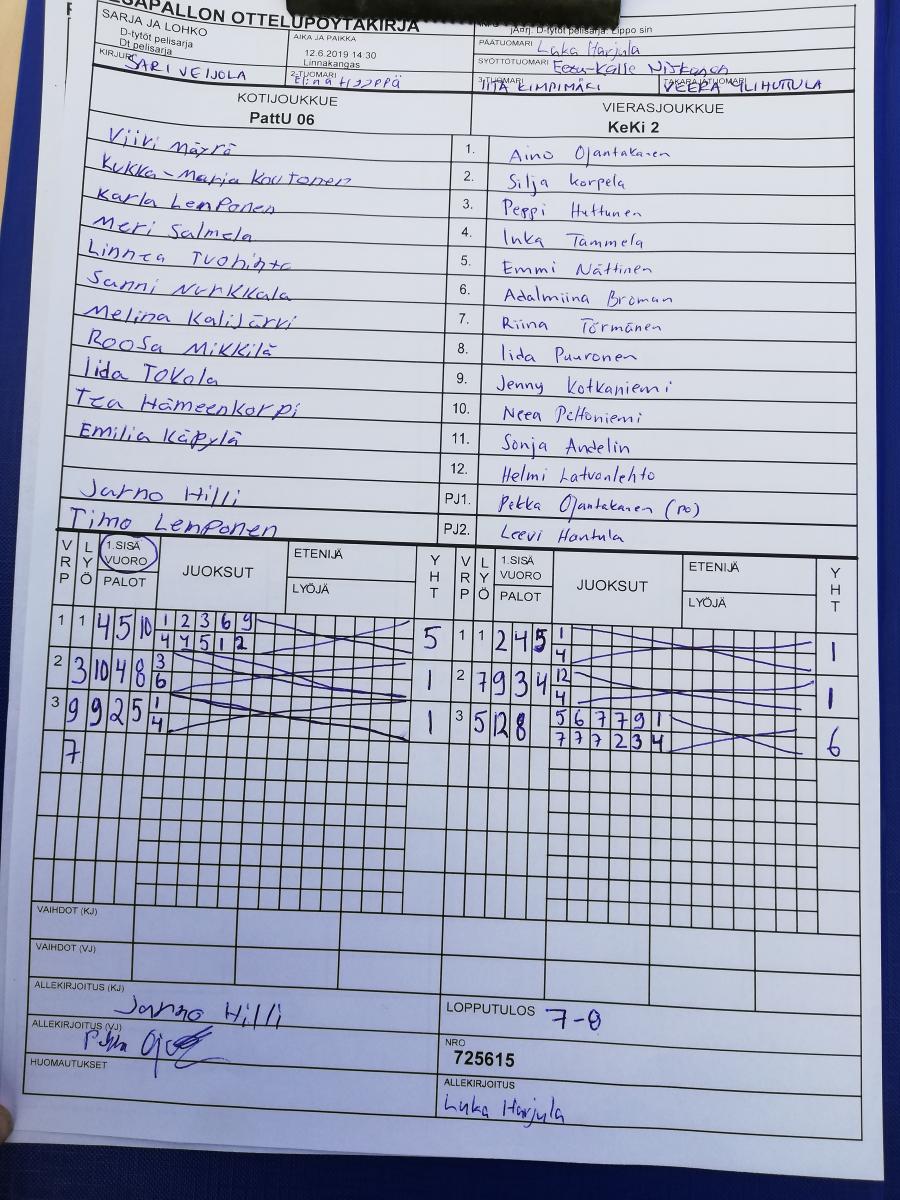 PESAPALLON OTTELUPÖYTÄKIRJA
SARJA JA LOHKO
D-tytöt pelisarja
Dt pelisarja
AIKA JA PAIKKA
12.6.2019 14:30
Linnakangas
jäärj. D-tytöt pelisarja: Lippo sin
PÄÄTUOMARI Luka Harjula
SYÖTTÖTUOMARI Eetu-Kalle Niskanen
KIRJURI SARI VEIJOLA
2-TUOMARI Elina
3-TUOMARI IITA KIMPIMÄKI
TAKARAJATUOMARI VEERA YLIHUTTULA
KOTIJOUKKUE
PattU 06
VIERASJOUKKUE
KeKi 2
Viivi Märrä 1. Aino Ojantakanen
Kukka-Marja Koutonen 2. Silja Korpela
Karla Lenponen 3. Peppi Huttunen
Meri Salmela 4. Inka Tammela
Linnea 5. Emmi Nättinen
Sanni Nurkkala 6. Adalmiina Broman
Melina Kalijärvi 7. Riina Törmänen
Roosa Mikkilä 8. Iida Puuronen
Iida Tokola 9. Jenny Kotkaniemi
Tea Hämeenkorpi 10. Neea Peltoniemi
Emilia Käpylä 11. Sonja Andelin
12. Helmi Latvanlehto
Jarno Hilli PJ1. Pekka Ojantakanen (po)
Timo Lenponen PJ2. Leevi Hantula
VRP LYÖ 1.SISÄ VUORO PALOT JUOKSUT ETENIJÄ LYÖJÄ YHT VRP LYÖ 1.SISÄ VUORO PALOT JUOKSUT ETENIJÄ LYÖJÄ YHT
1 1 4 5 10 1 2 3 6 9 5 1 1 2 4 5 1 1
4 4 5 1 2 4
2 3 10 4 8 3 1 2 7 9 3 4 12 1
6 4
3 9 9 2 5 1 1 3 5 12 8 5 6 7 7 9 1 6
4 7 7 7 2 3 4
7
VAIHDOT (KJ)
VAIHDOT (VJ)
ALLEKIRJOITUS (KJ) Jarno Hilli
LOPPUTULOS 7-8
ALLEKIRJOITUS (VJ)
NRO
725615
HUOMAUTUKSET
ALLEKIRJOITUS
Luka Harjula